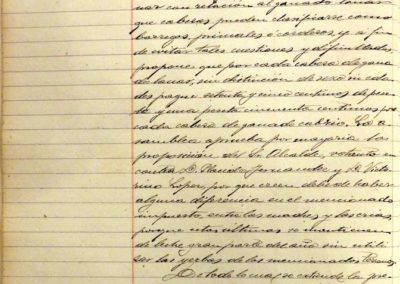 nar con relación al ganado lanar
que cabezas pueden clasificarse como
borregos, primales ó corderos, y a fin
de evitar tales cuestiones y dificultades
propone que por cada cabeza de gana
do lanar, sin distinción de sexo ni eda
des pague setenta y cinco centimos de pese
ta y una peseta cincuenta centimos por
cada cabeza de ganado cabrio. La a
samblea aprueba por mayoria la
proposición del Sr. Alcalde, votando en
contra D. Fernandez y D. Victo
rino Lopez, por que creen debe de haber
alguna diferencia en el mencionado
impuesto, entre las madres y las crias,
porque estas ultimas se mantienen
de leche gran parte del año sin utili
sar las yerbas de los mencionados terrenos.
De todo lo cual se extiende la pre